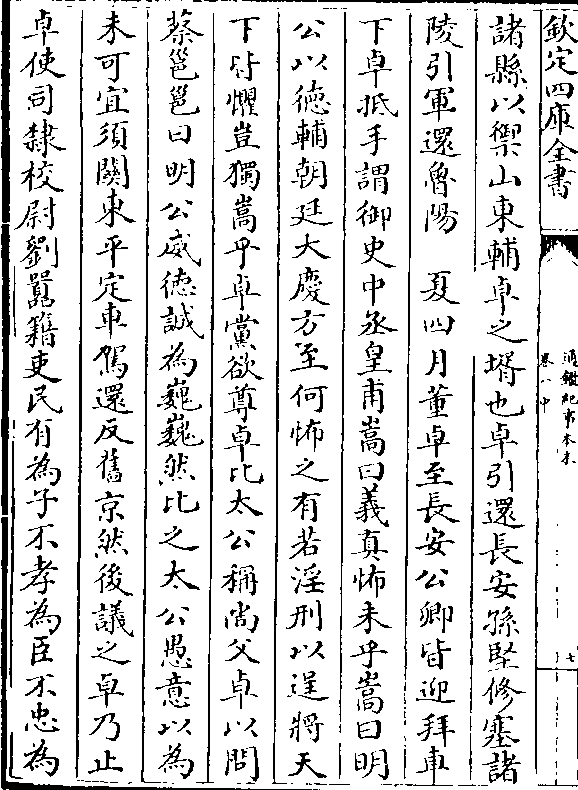 欽定四庫全書
通鑑紀事本末
卷八中
七
諸縣以禦山東輔卓之壻也卓引還長安孫堅修塞諸
陵引軍還魯陽　夏四月董卓至長安公卿皆迎拜車
下卓抵手謂御史中丞皇甫嵩曰義真怖未乎嵩曰明
公以徳輔朝廷大慶方至何怖之有若淫刑以逞將天
下皆懼豈獨嵩乎卓黨欲尊卓比太公稱尚父卓以問
蔡邕邕曰明公威徳誠為巍巍然比之太公愚意以為
未可宜須關東平定車駕還反舊京然後議之卓乃止
卓使司隸校尉劉囂籍吏民有為子不孝為臣不忠為